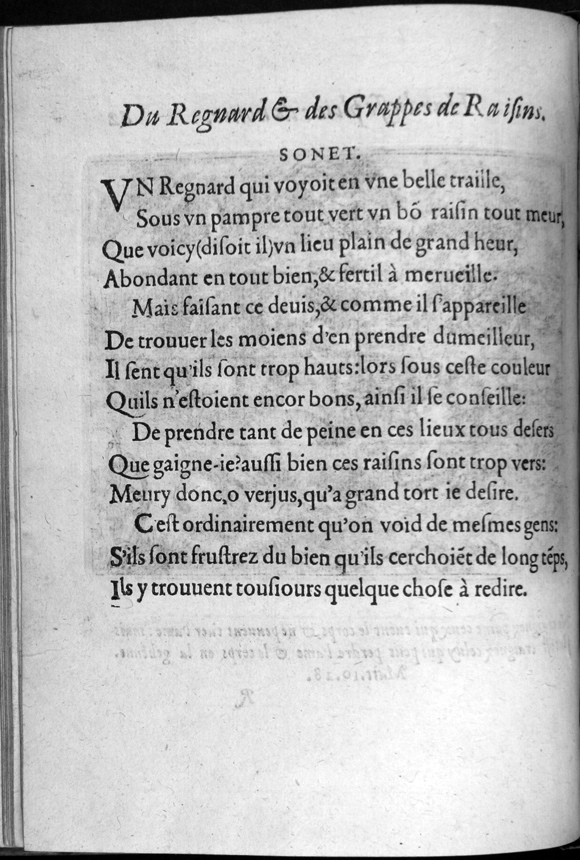 Du Regnard & des Grappes de Raiſins.
SONET.
VN Regnard qui voyoit en vne belle traille,
Sous vn pampre tout vert vn bõ raiſin tout meur,
Que voicy (diſoit il) vn lieu plain de grand heur,
Abondant en tout bien, & fertil à merueille.
Mais faiſant ce deuis, & comme il ſ'appareille
De trouuer les moiens d'en prendre du meilleur,
Il ſent qu'ils ſont trop hauts: lors ſous ceſte couleur
Quils n'eſtoient encor bons, ainſi il ſe conſeille:
De prendre tant de peine en ces lieux tous deſers
Que gaigne-ie? auſſi bien ces raiſins ſont trop vers:
Meury donc, o verjus, qu'a grand tort ie deſire.
C'eſt ordinairement qu'on void de meſmes gens:
S'ils ſont fruſtrez du bien qu'ils cerchoiẽt de long tẽps,
Ils y trouuent touſiours quelque choſe à redire.